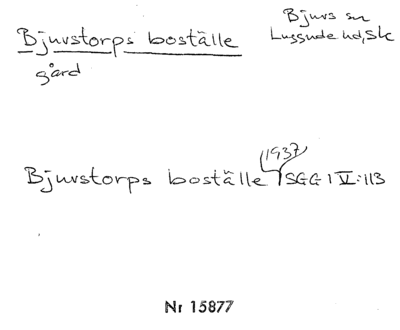 Bjuvstorps boställe
gård
Bjuvs sn
Luggude hd, Sk
(1937)
Bjuvstorps boställe SGG 1 V:113
Nr 15877